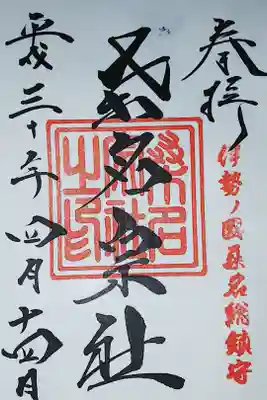 奉拝
伊勢ノ國桑名総鎮守
桑名宗社
平成三十年四月十四日